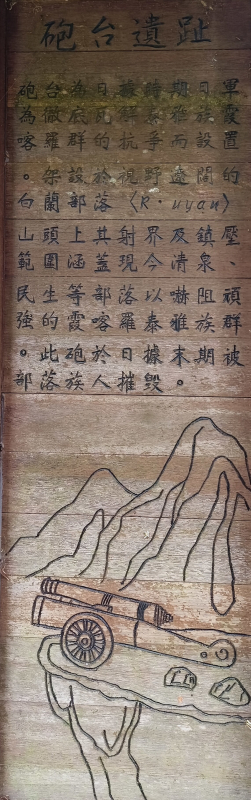 砲台遺趾
砲台為日據時期日軍
為徹底瓦解泰雅族霞
喀羅群的抗爭而設置
。架設於視野遼闊的
白蘭部落〈R·uyan〉
山頭上其射界及鎮壓
範圍涵蓋現今清泉、
民生等部落以嚇阻頑
強的霞喀羅泰雅族群
。此砲於日據末期被
部落族人摧毀。